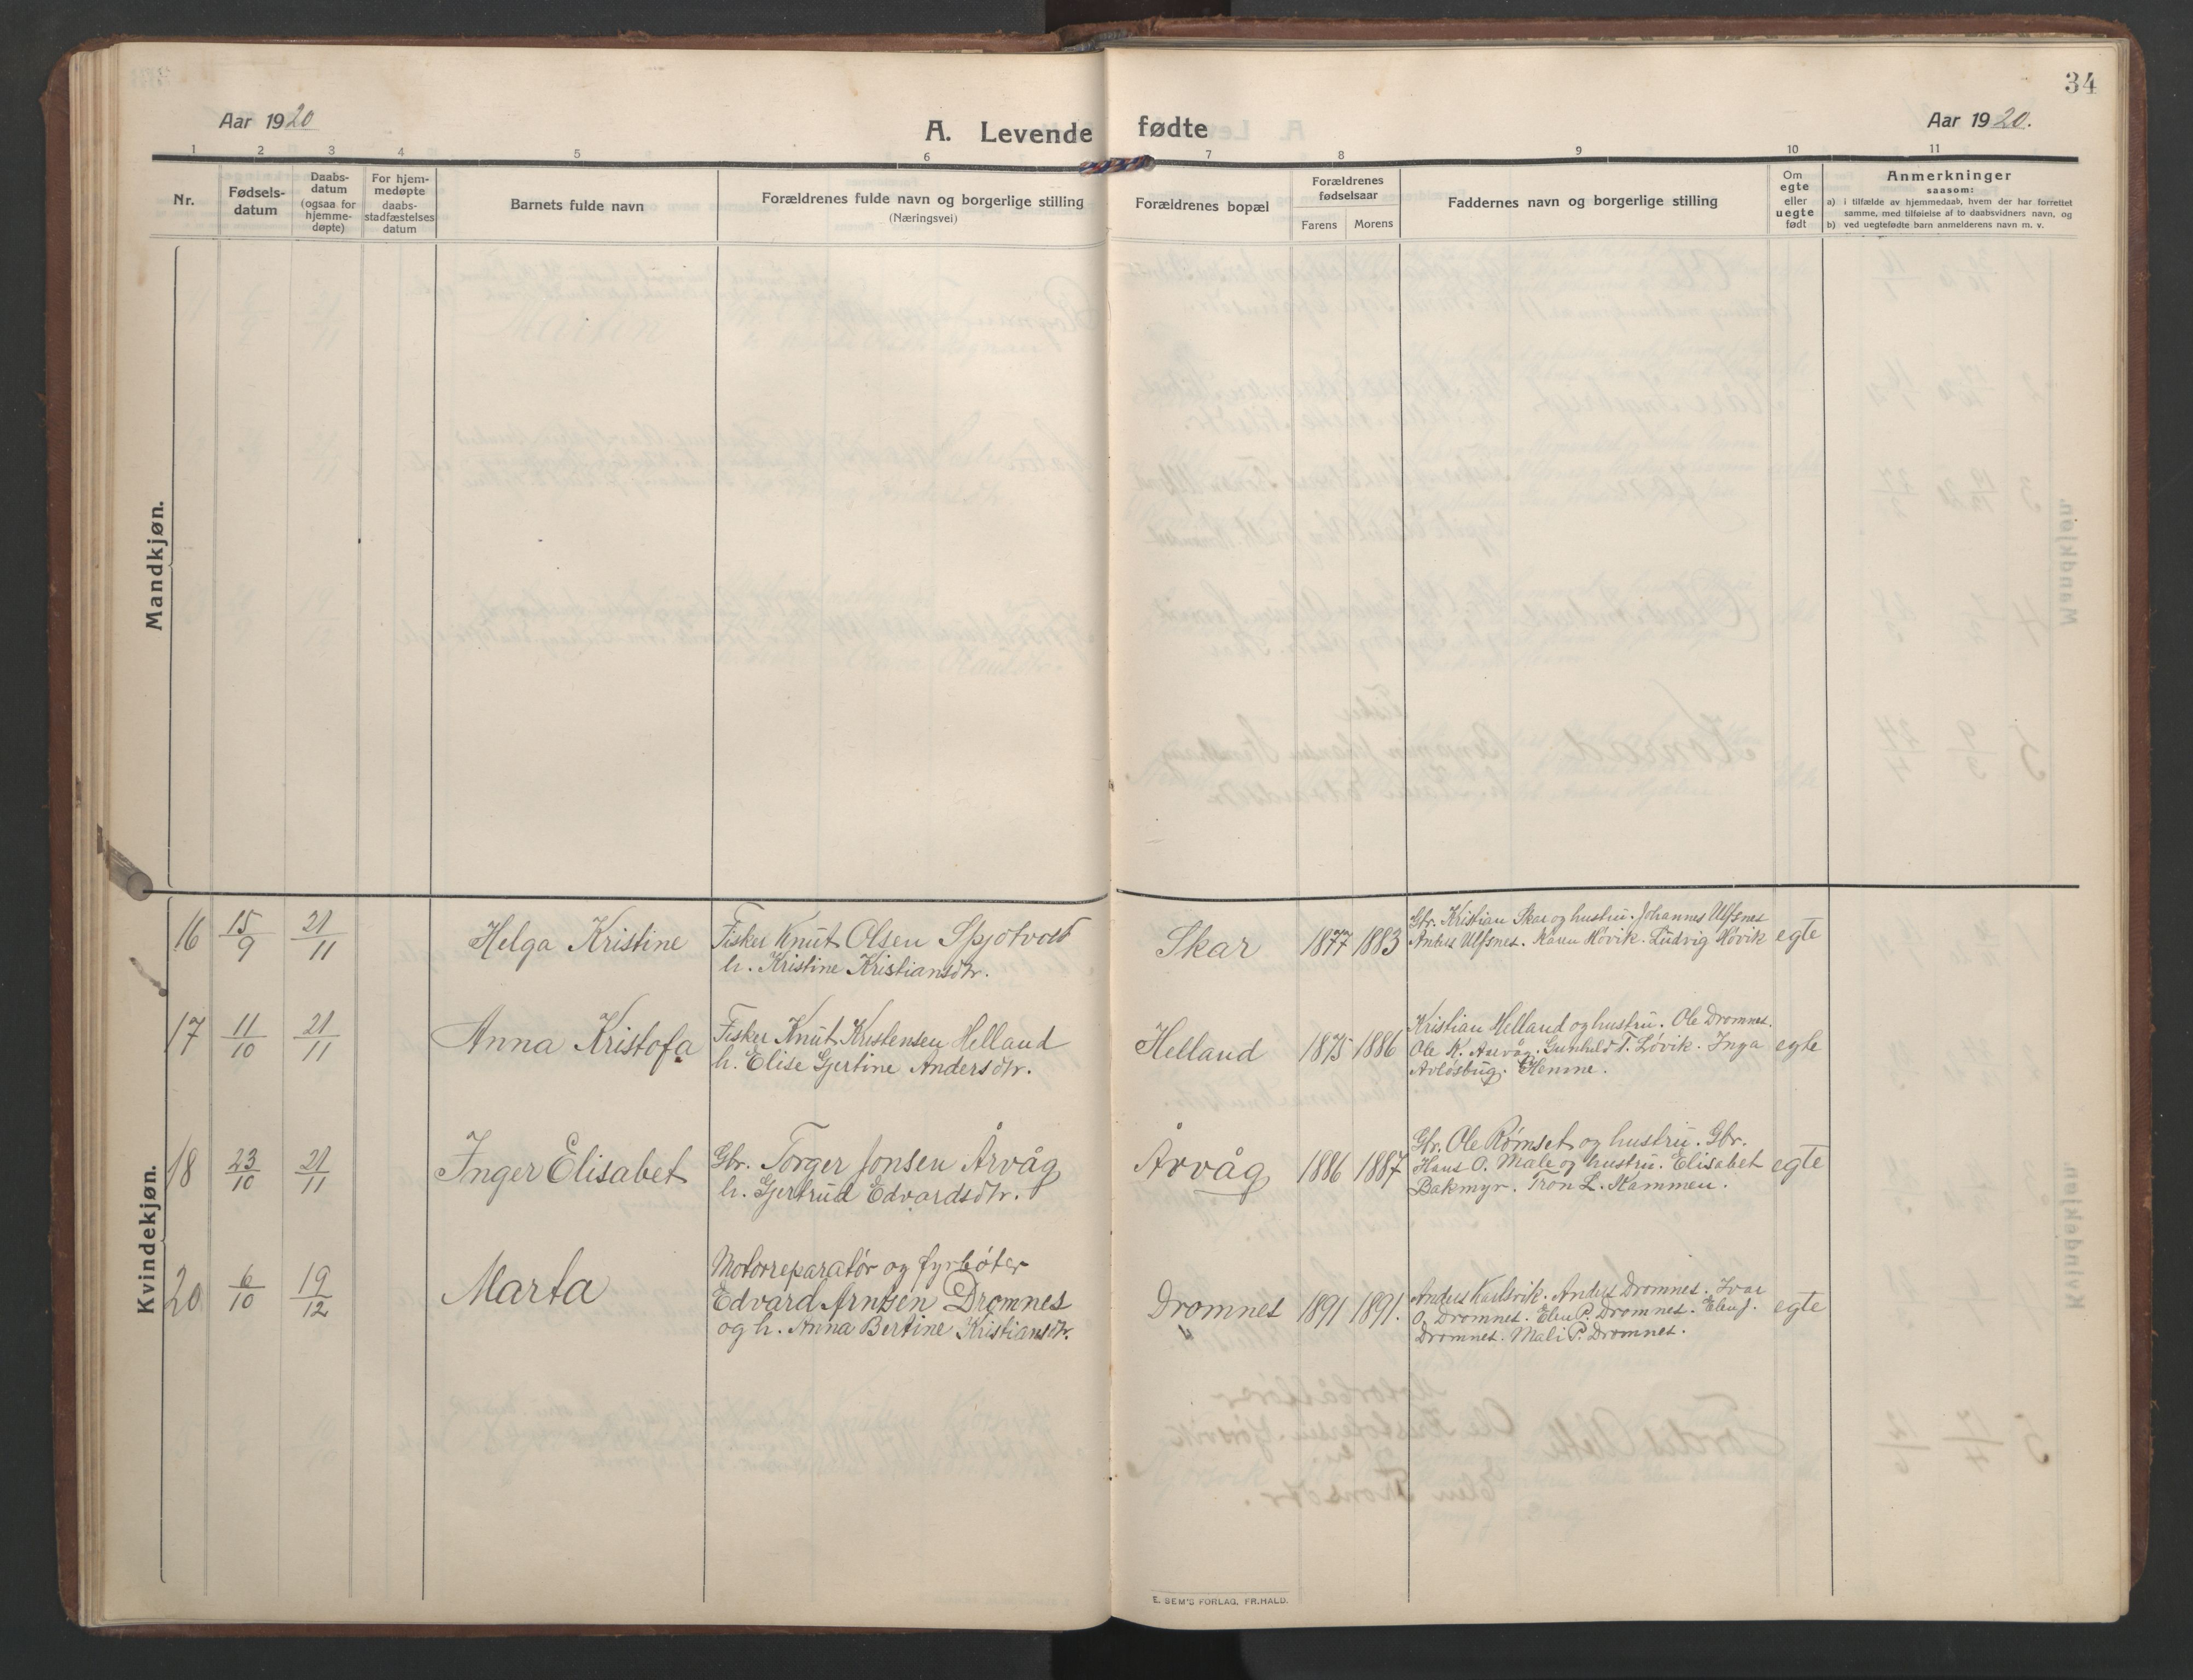 34
Aar 1920
A. Levende fødte
Aar 1920.
1 2 3 4 5 6 7 8 9 10 11
Nr.
Fødsels-
datum
Daabs-
datum
(ogsaa for
hjemme-
døpte)
For hjem-
medøpte
daabs-
stadfæstelses
datum
Barnets fulde navn
Forældrenes fulde navn og borgerlige stilling
(Næringsvei)
Forældrenes bopæl
Forældrenes
fødselsaar
Farens Morens
Faddernes navn og borgerlige stilling
Om
egte
eller
uegte
født
Anmerkninger
saasom:
a) i tilfælde av hjemmedaab, hvem der har forrettet
samme, med tilføielse af to daabsvidners navn, og
b) ved uegtefødte barn anmelderens navn m. v.
Mandkjøn.
Kvindekjøn.
16 15/9 21/11 Helga Kristine
Fisker Knut Olsen Spjotvold
h. Kristine Kristiansdtr.
Skar 1877 1883
Gbr. Kristian Skar og hustru. Johannes Ulfsnes
Anders Ulfsnes. Karen Hövik. Ludvig Hövik
egte
17 11/10 21/11 Anna Kristofa
Fisker Knut Kristensen Helland
h. Elise Gjertine Andersdtr.
Helland 1875 1886
Kristian Helland og hustru. Ole Dromnes.
Ole K. Aarvåg. Gunhild T. Lövik. Inga
Avlösbug. Hemne.
egte
18 23/10 21/11 Inger Elisabet
Gbr. Torger Jonsen Årvåg
h. Gjertrud Edvardsdtr.
Årvåg 1886 1887
Gbr. Ole Römset og hustru. Gbr.
Hans O. Male og hustru. Elisabet
Bakmyr. Tron L. Stammen.
egte
20 6/10 19/12 Marta
Motorreparatør og fyrbøter
Edvard Arntsen Dromnes
og h. Anna Bertine Kristiansdtr.
Dromnes 1891 1891.
Anders Karlsvik. Anders Dromnes. Ivar
O. Dromnes. Elen P. Dromnes. Elen J.
Dromnes. Mali P. Dromnes.
egte
E. SEM'S FORLAG, FR.HALD.